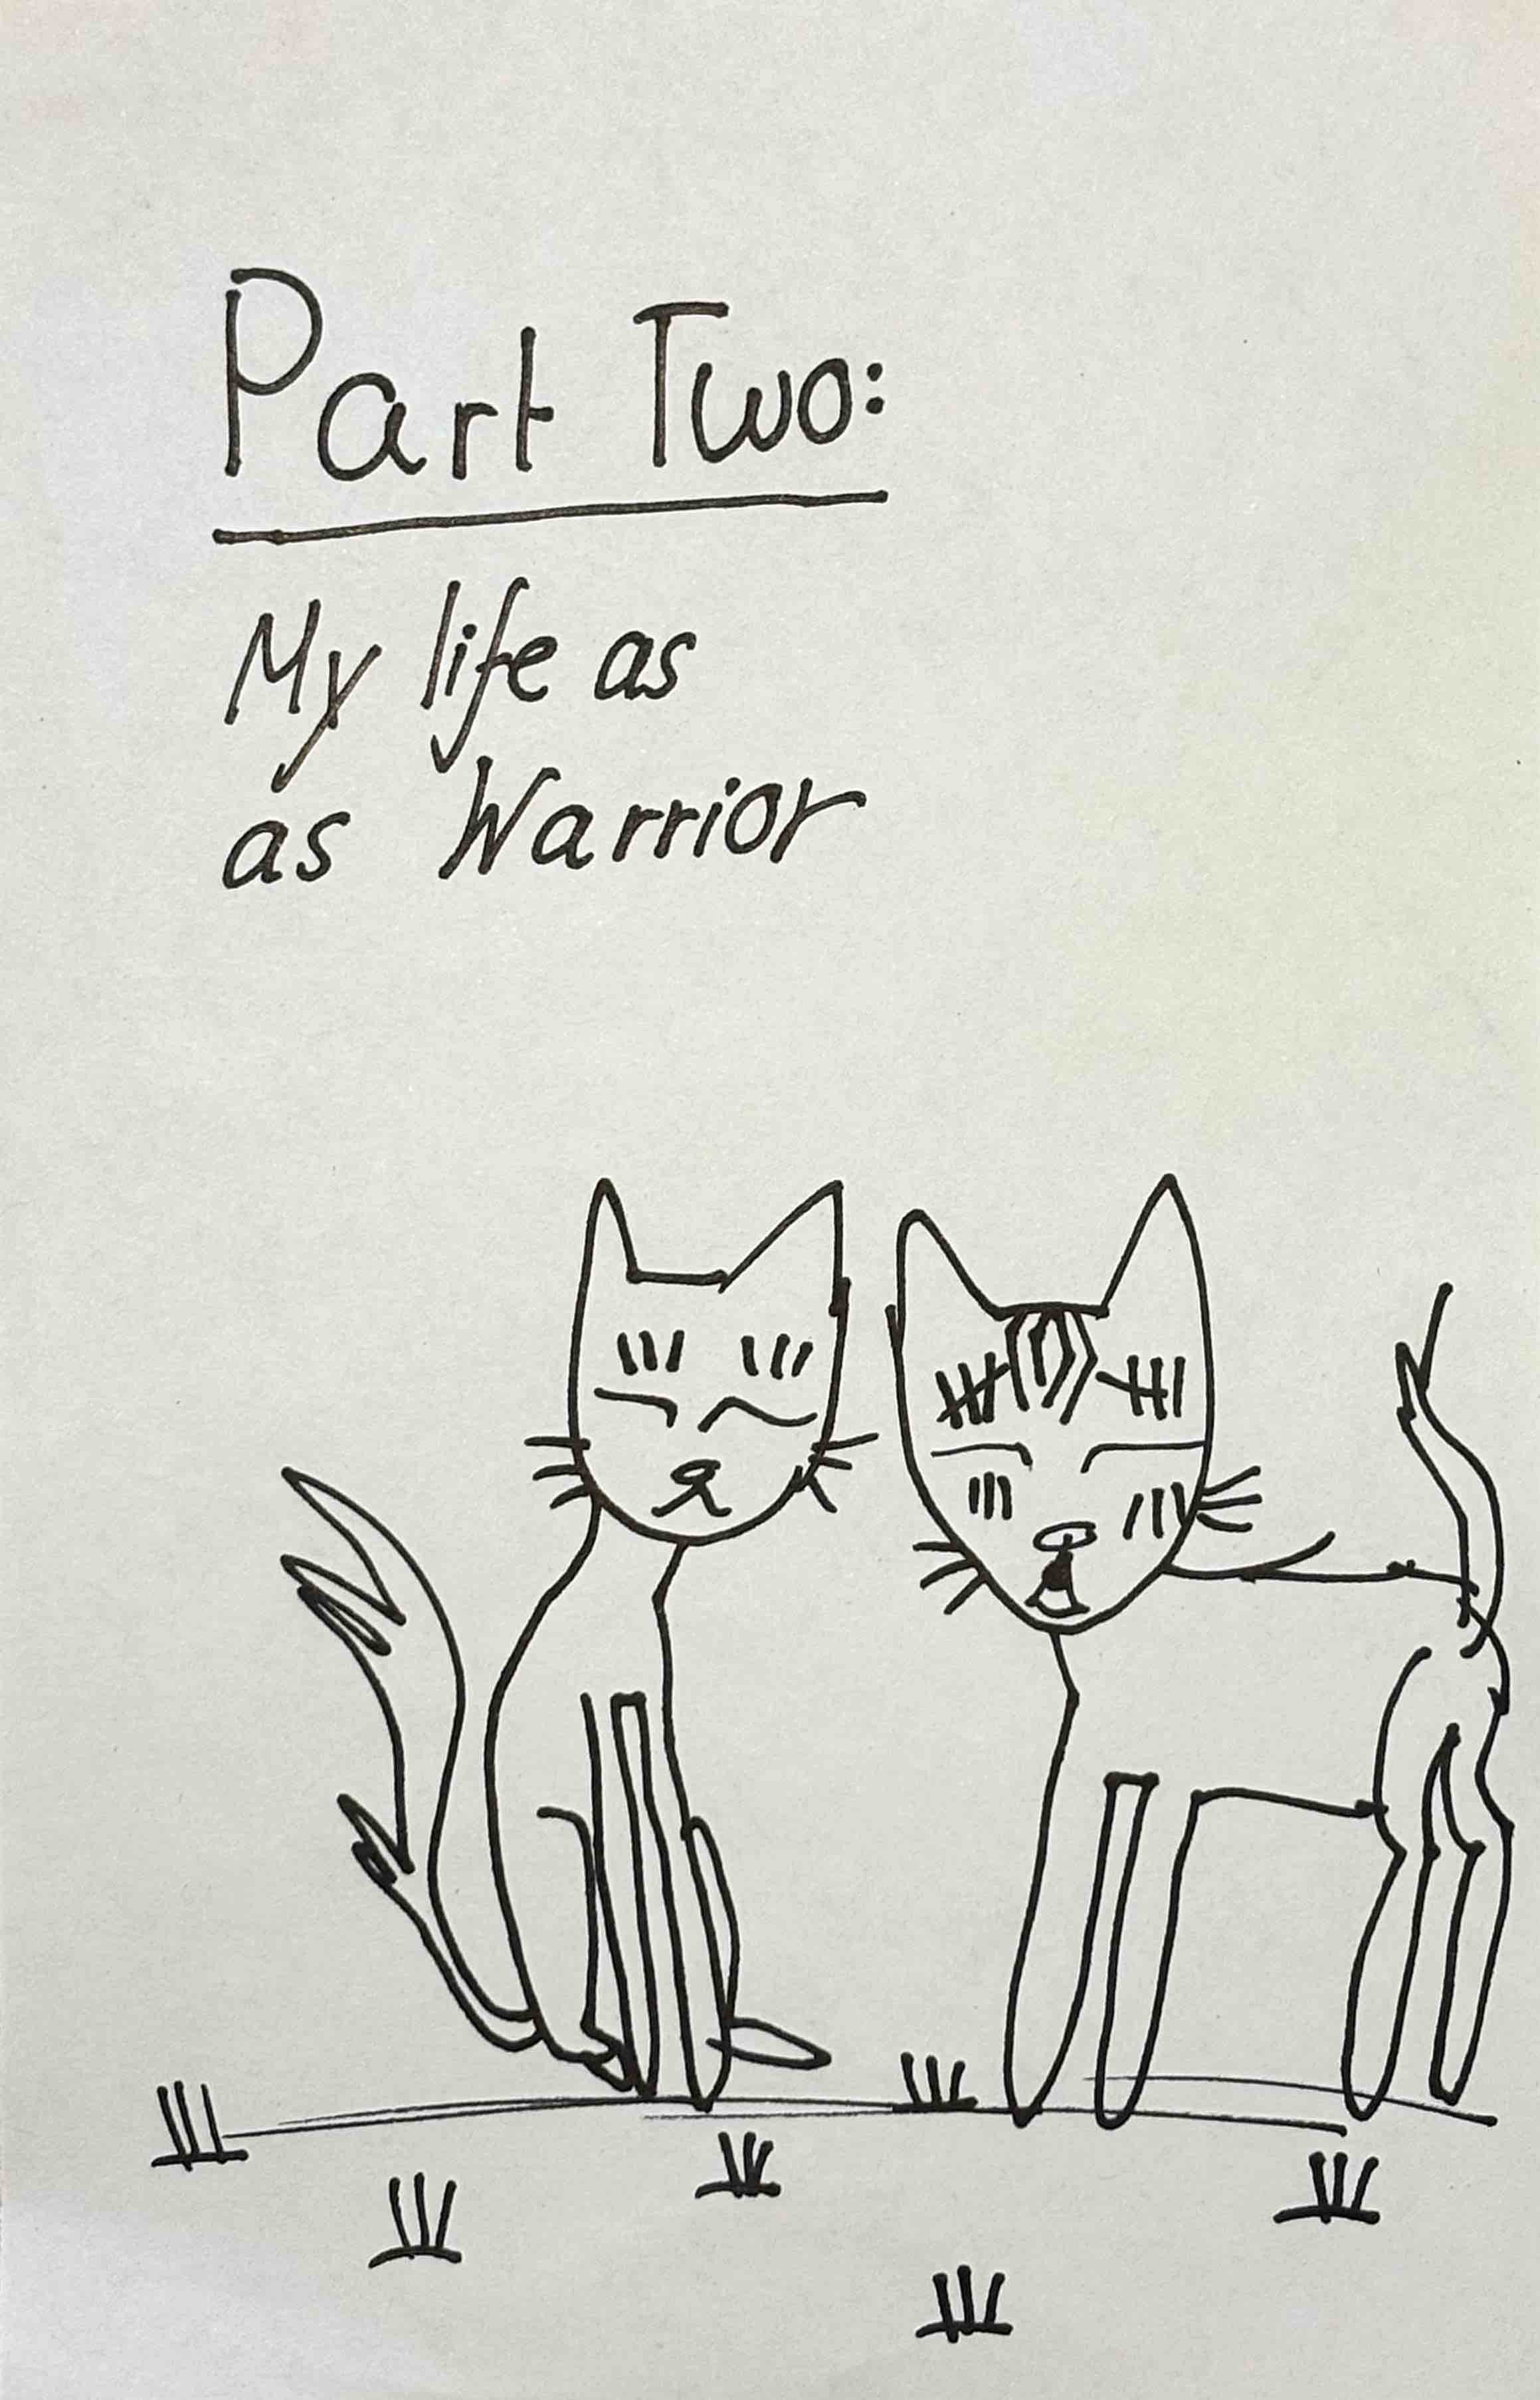 Part Two:
My life as
as Warrior